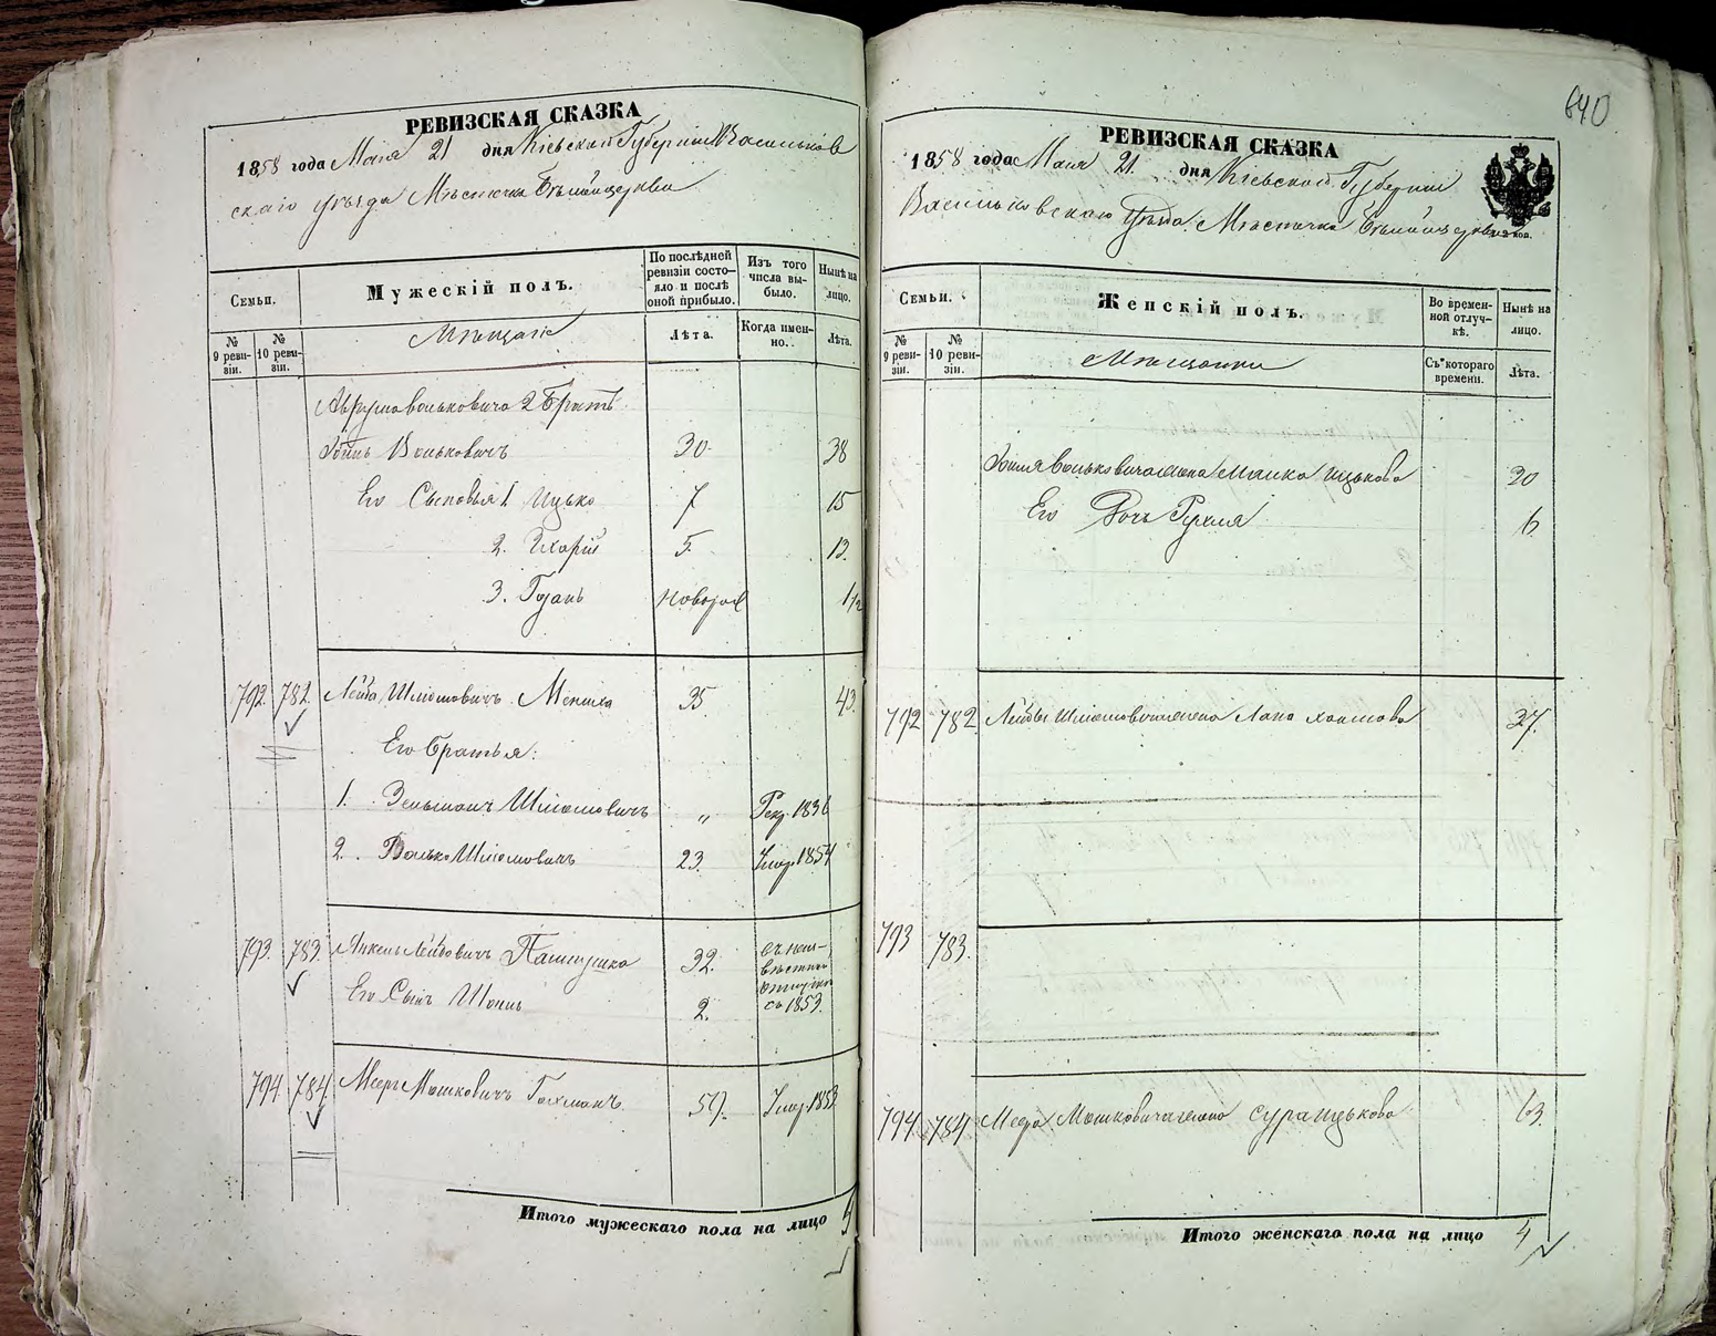 640
РЕВИЗСКАЯ СКАЗКА
1858 года Мая 21 дня Кіевской Губерніи Васильков
скаго уѣзда Мѣстечка Бѣлойцеркви
Семьи.
Мужескій полъ.
По послѣдней ревизіи состояло и послѣ оной прибыло.
Изъ того числа выбыло.
Нынѣ на лицо.
№ 9 ревизіи.
№ 10 ревизіи.
Мѣщане
Лѣта.
Когда именно.
Лѣта.
Аврума Вольковича 2 Братъ
Вольковичъ 30 38
Его Сыновья 1. Ицько 7 15
2. 5. 13.
3. новорож 1/2
792. 782. Лейба Шліомовичъ 35. 43.
Его Братья:
1. Зельманъ Шліомовичъ „ Рекр. 1836
2. Волько Шліомовичъ 23. Умер. 1854
793. 783. Янкель Лейбовичъ 32. въ неизвѣстной отлучкѣ съ 1853.
Его Сынъ 2.
794. 784. Меер Мошковичъ 57. Умер. 1853
Итого мужескаго пола на лицо
РЕВИЗСКАЯ СКАЗКА
1858 года Мая 21. дня Кіевской Губерніи
Васильковскаго уѣзда Мѣстечка Бѣлойцеркви
Семьи.
Женскій полъ.
Во временной отлучкѣ.
Нынѣ на лицо.
№ 9 ревизіи.
№ 10 ревизіи.
Мѣщанки
Съ котораго времени.
Лѣта.
Вольковича жена Малка Ицькова 30
Его Дочь Рухля 6
792 782 Лейбы Шліомовича жена Хаимова 37.
793 783.
794. 784. Меера Мошковича жена Сура Ицькова 63.
Итого женскаго пола на лицо 4